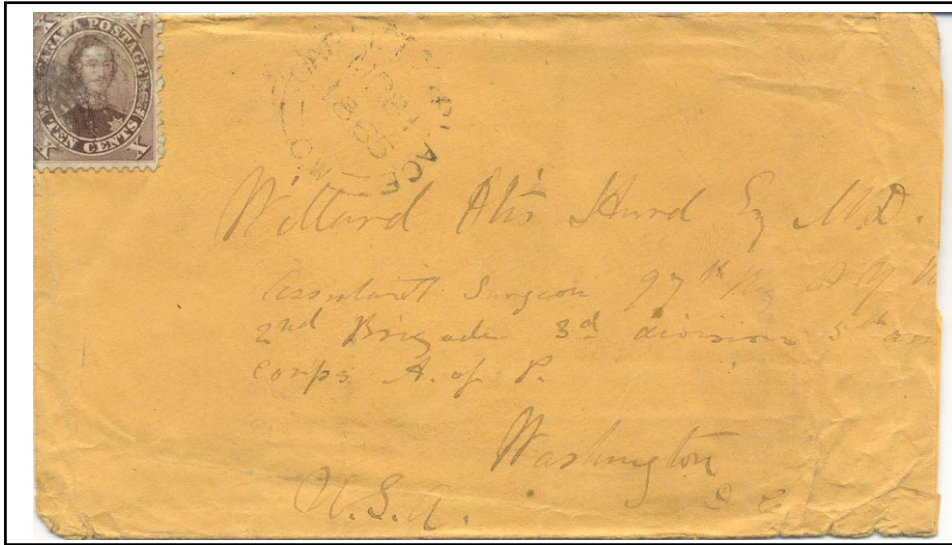 CANADA POSTAGE
TEN CENTS
X X X X
PLACE
Willard Hurd Esq M.D.
Assistant Surgeon 97th Reg N Y V
2nd Brigade 3d division 5th
Corps A. of P.
Washington
D C
U.S.A.